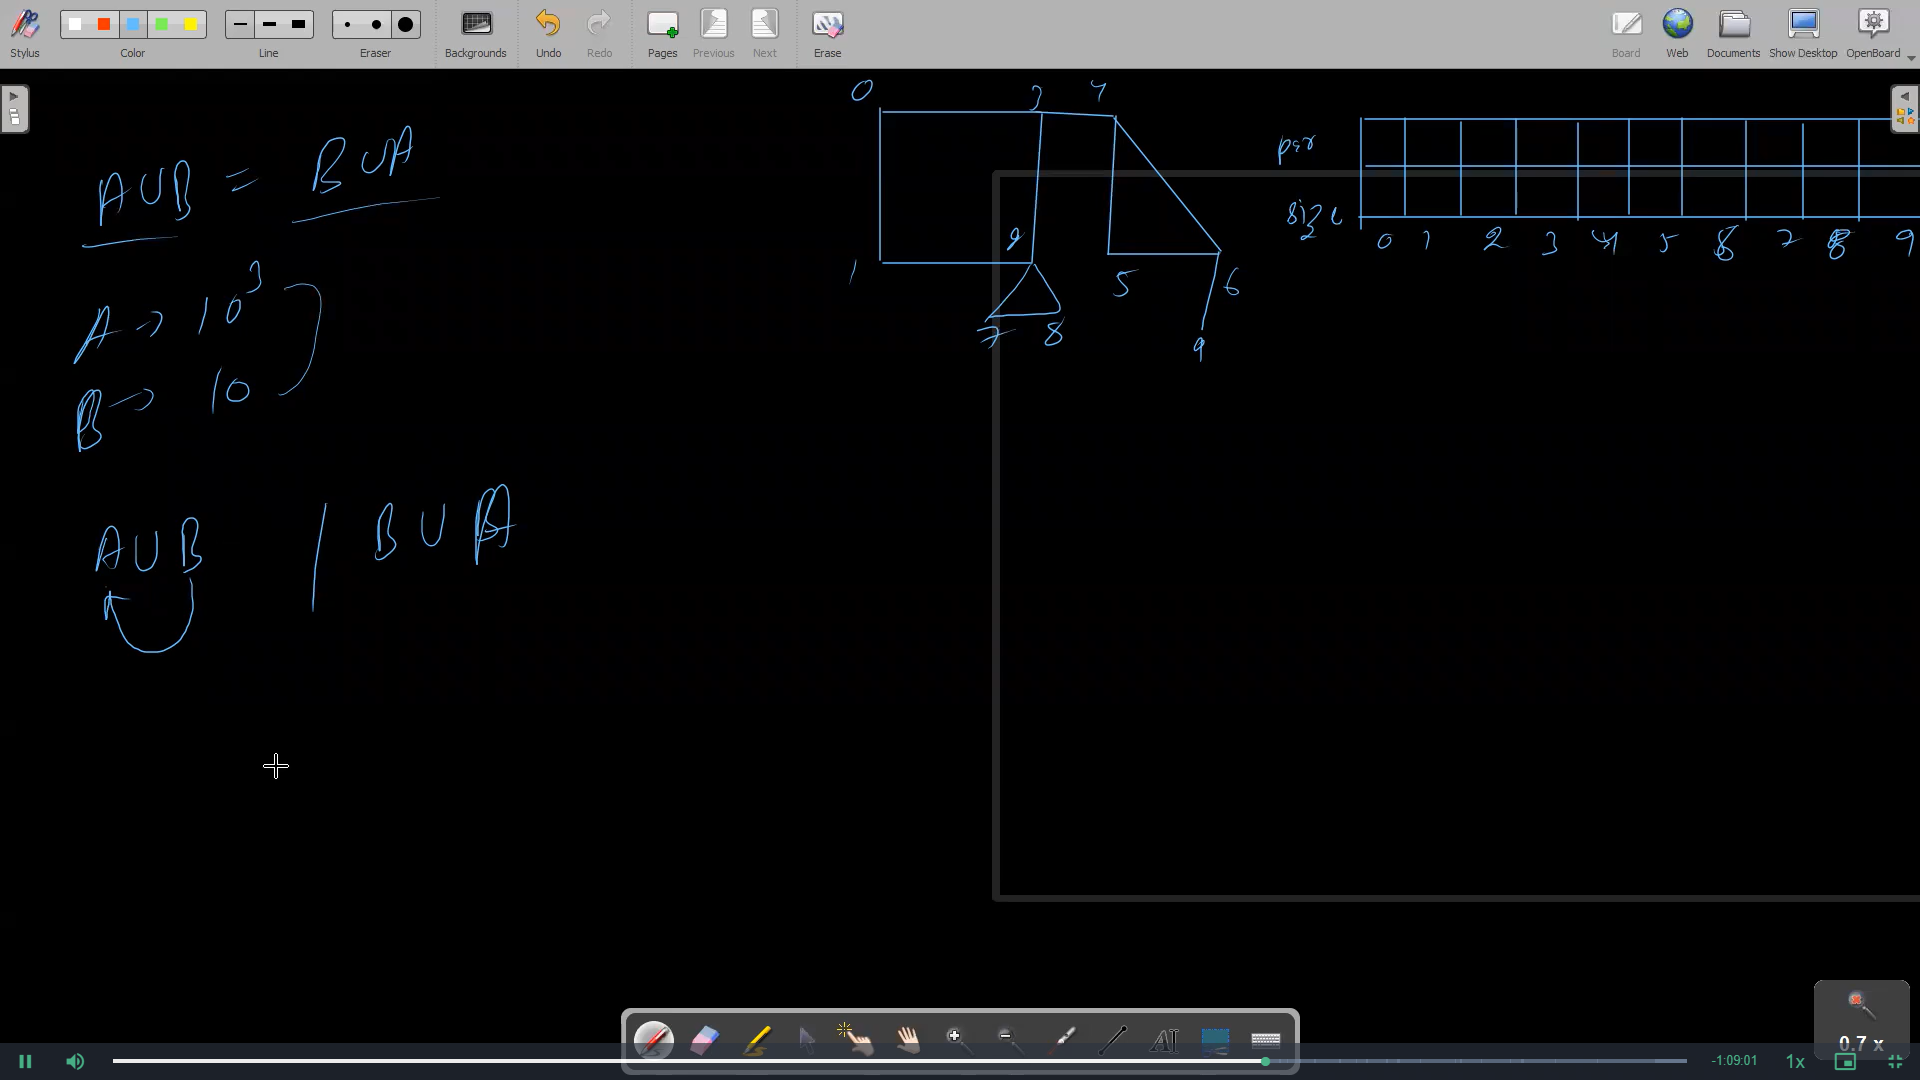 Stylus
Color
Line
Eraser
Backgrounds
Undo
Redo
Pages
Previous
Next
Erase
Board
Web
Documents
Show Desktop
OpenBoard
A U B = B U A
A → 10³
B → 10
A U B | B U A
0 3 4
1 2 5 6
7 8 9
par
size
0 1 2 3 4 5 6 7 8 9
0.7 x
-1:09:01
1x